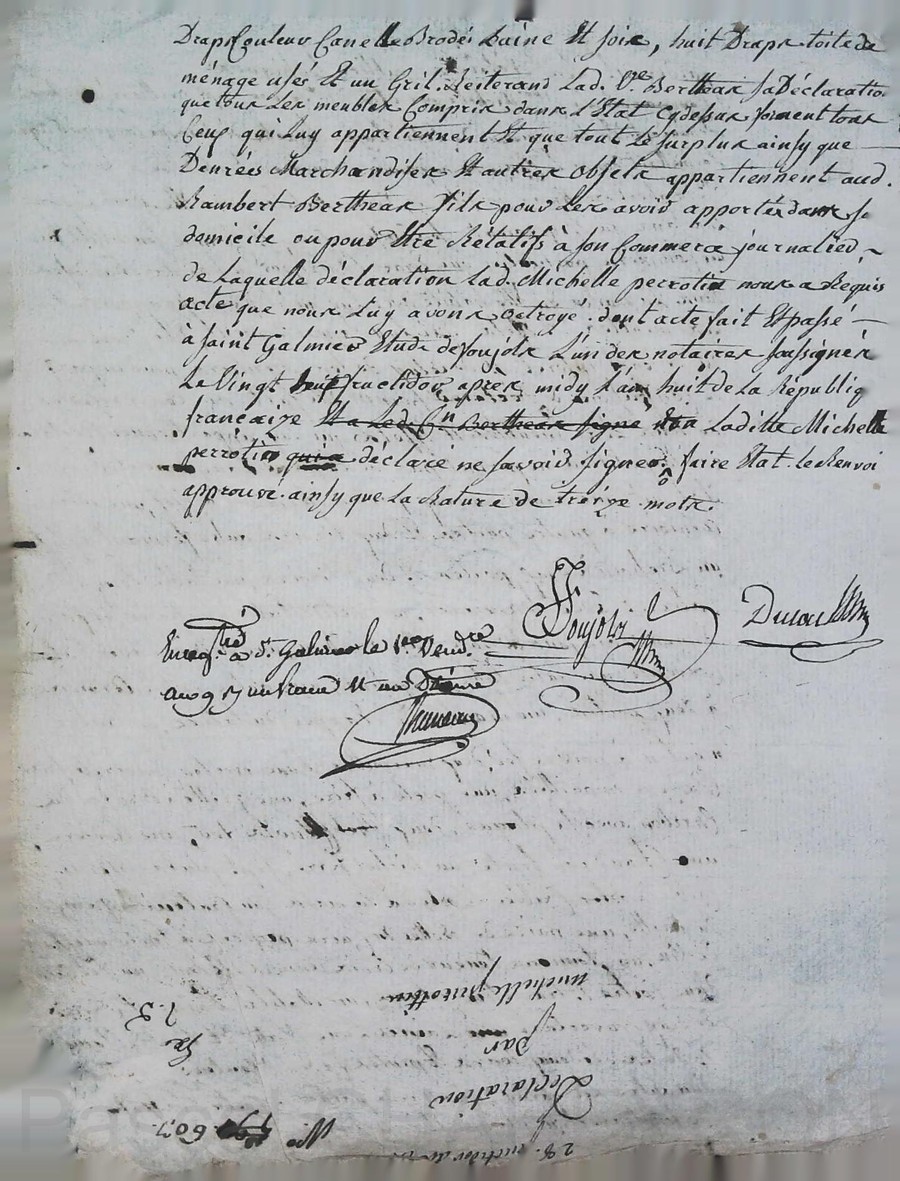 Drap Couleur Canelle Brodés Laine Et soie, huit Draps toile de
ménage usés Et un Gril. Reiterand Lad. Ve. Berthear sa Déclaratio
que tous Les meubles Compris dans L'Etat Cydessus forment tous
Ceux qui Luy appartiennent Et que tout Le surplus ainsy que
Denrées Marchandises Et autres objets appartiennent aud.
Rambert Berthear fils pour Les avoir apportés dans se
domicile ou pour Etre Rélatifs à son Commerce journalier,
de Laquelle déclaration Lad. Michelle perrotin nous a Requis
acte que nous Luy avons octroyé. dont acte fait Et passé
à Saint Galmier Etude de Soujols L'un des notaires soussignés
Le Vingt huit fructidor après midy L'an huit de La Républiq
françaize Et a Led. Cn. Berthear signé Laditte Michelle
perrotin qui a déclaré ne savoir signer. faire Etat. le Renvoi
approuvé. ainsy que La Rature de treize mots.
Soujols
Enregtré à St. Galmier le 1er Vendre
an 9 Ry un franc Et un Décime
Nos 607
Declaration
par
michelle perrottin
28. fructidor an 8